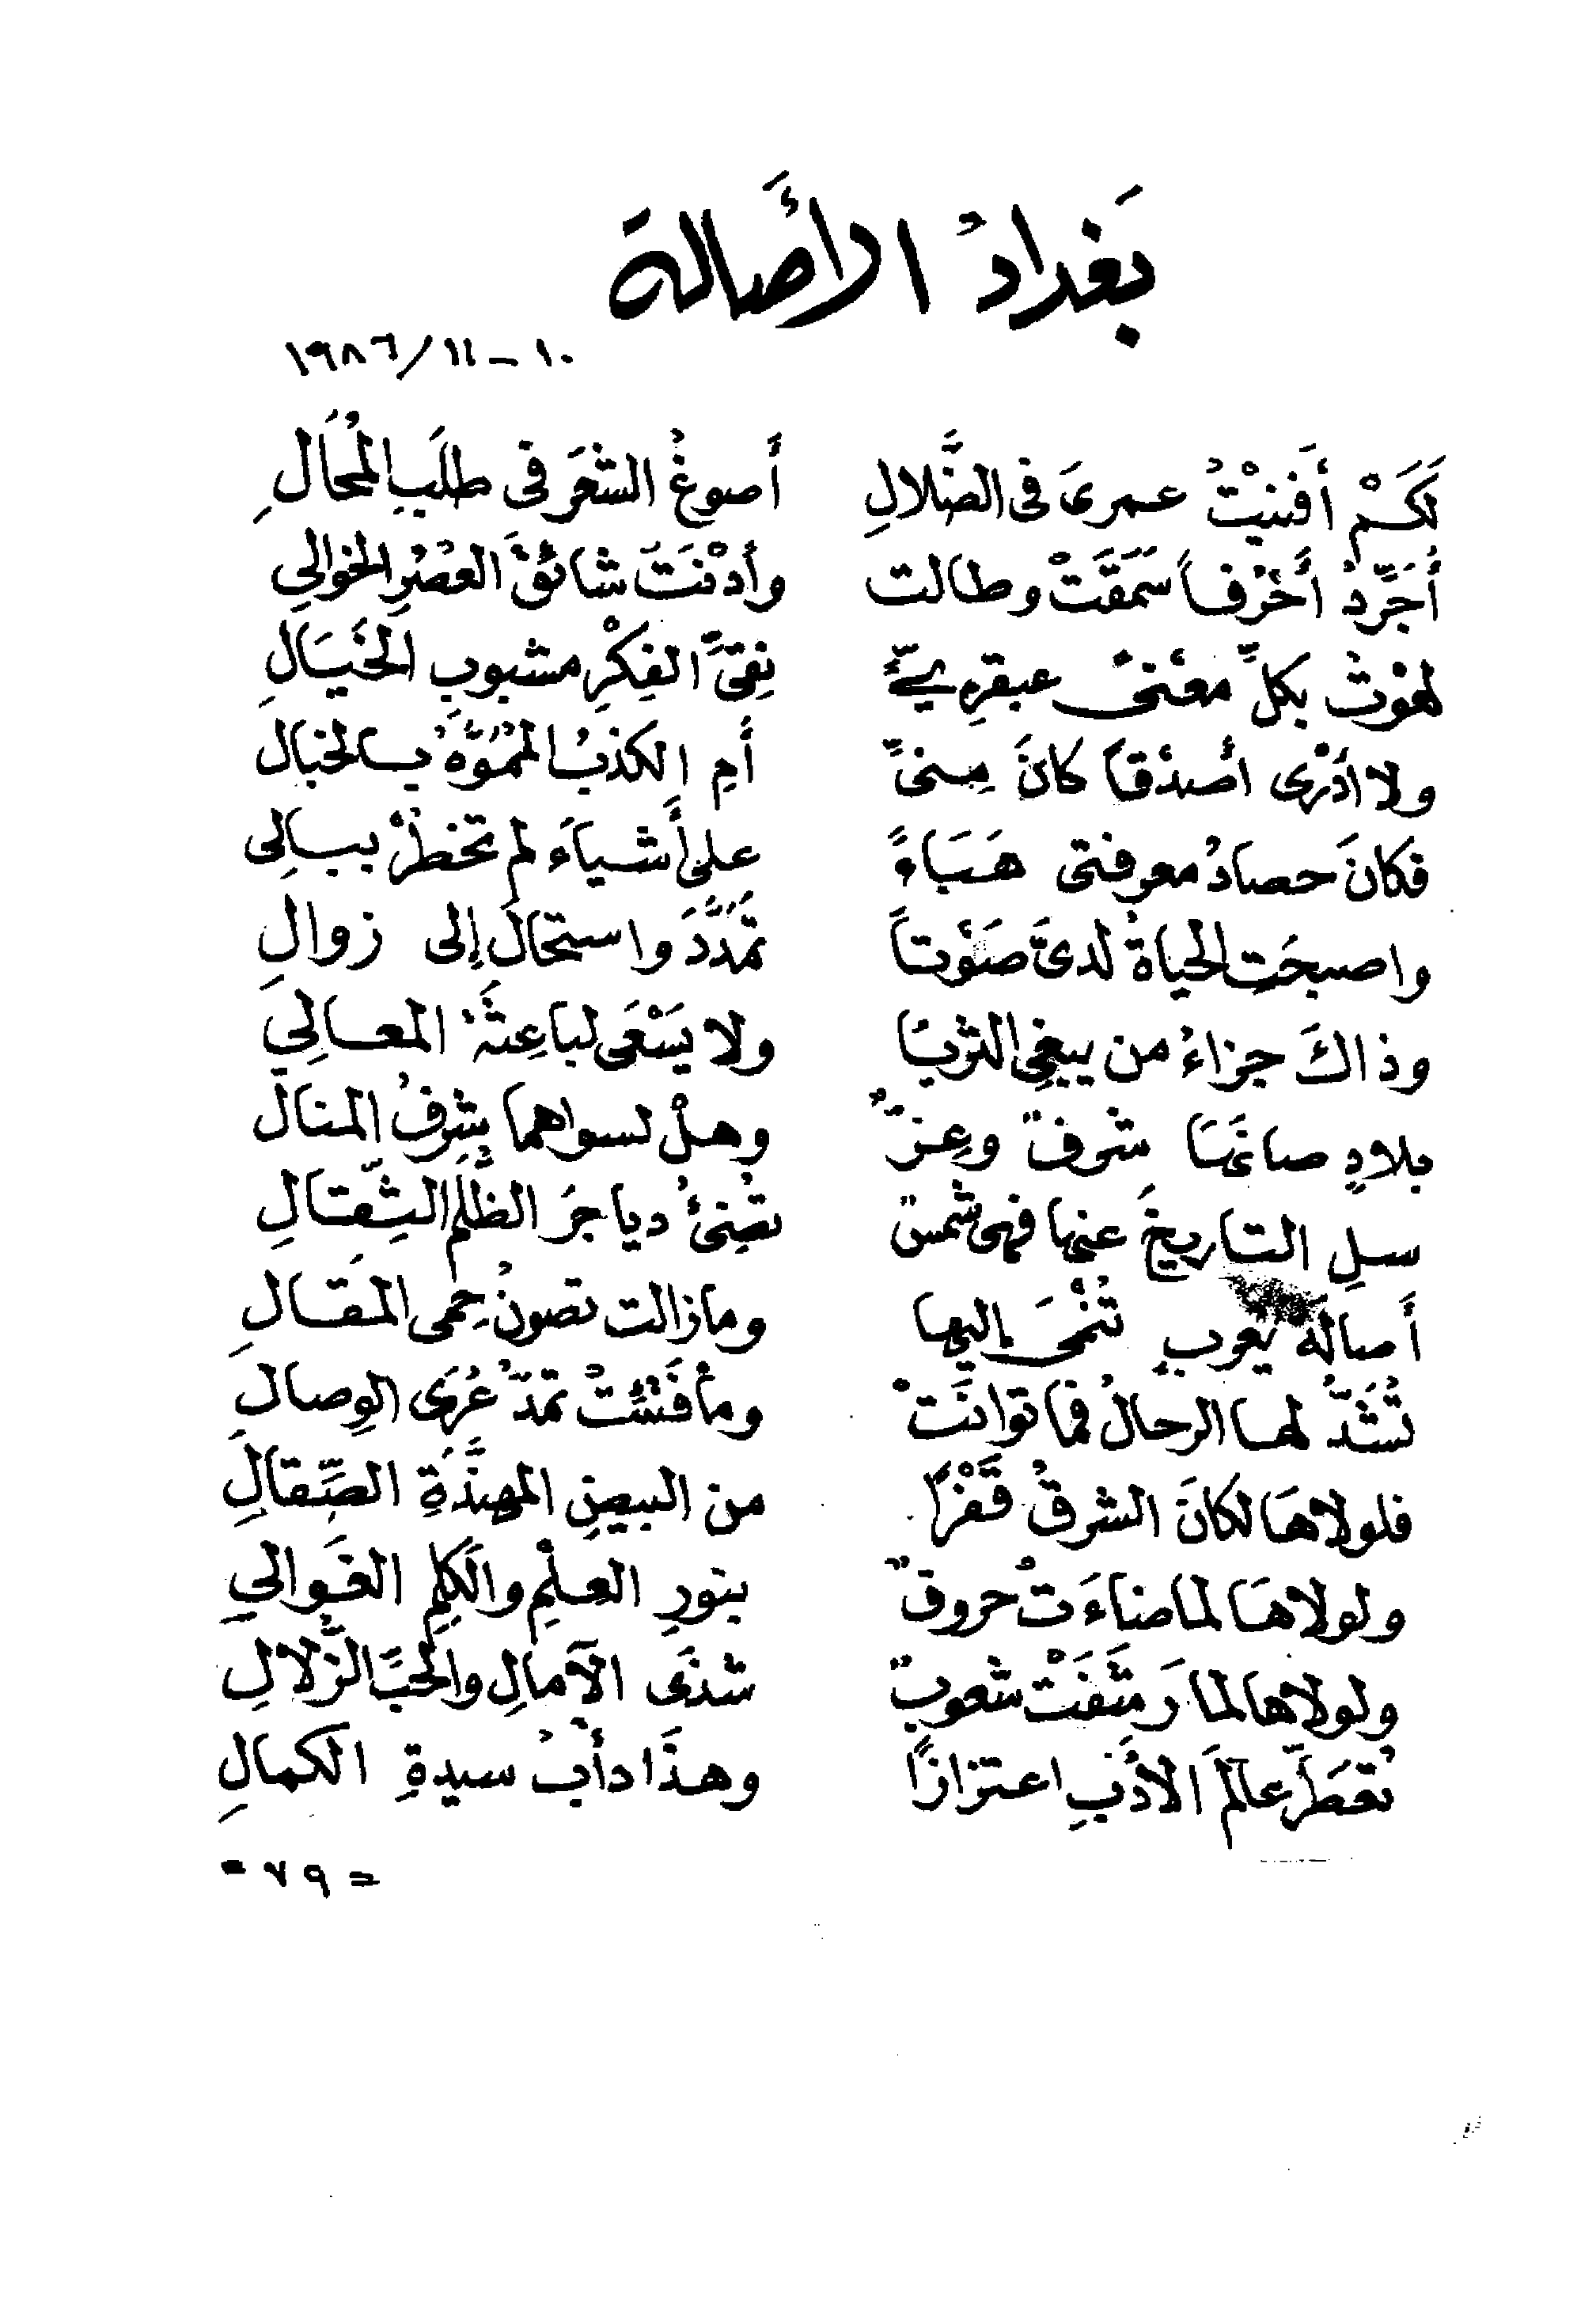 بَغدادُ الأَصالة
١٠-١١/١٩٨٦
لَكَمْ أَفنيْتُ عمرىَ فى الضَّلالِ أَصوغُ الشعَر فى طلَبِ المُحَالِ
أُجَرِّدُ أَحْرفاً سَمَقَتْ وطالت وأدْنَتَ شائقَ العُصُرِ الخوالي
لهوْتُ بكلِّ معنىً عبقريٍّ نِقىَّ الفِكْرِ مشبوبِ الخَيَالِ
ولا أدْرى أصدْقاً كانَ مِنىِّ أَمِ الكذبُ المُمَوَّهُ بالخبال
فكانَ حصادُ معرفتى هَبَاءً على أَشياءَ لم تخطُرْ ببالِى
واصبحَتِ الحياةُ لدىَّ صَوْتاً تمَدَّدَ واستحالَ إلى زوالِ
وذاكَ جزاءُ من يبغِى الثريَّا ولا يَسْعَى لباعِثَةِ المعالِي
بلادٍ صانَهَا شرفٌ وعِزٌّ وهلْ لسواهما شِرفُ المنالِ
سلِ التاريخَ عنها فهى شمسٌ تضِئُ دياجرَ الظُّلَمِ الثِّقالِ
أَصالَة يعربٍ تُنْمَى إليها ومازالت تصونُ حِمى المَقالِ
تُشَدُّ لها الرحالُ فما توانَتْ ومافَتئتْ تمدّ عُرَى الوِصالِ
فلولاهَا لكانَ الشرقُ قَفْراً من البيضِ المهنَّدَةِ الصِّقالِ
ولولاهَا لما ضاءَتْ حروفٌ بنورِ العلْمِ والكَلِمِ الغَوالي
ولولاها لما رَشَفَتْ شعوبٌ شذَى الآمالِ والحبِّ الزُّلالِ
تُعَطِّرُ عالَمَ الأدَبِ اعتزازًا وهذَا دأبُ سيدةِ الكمالِ
= ٧٩ -